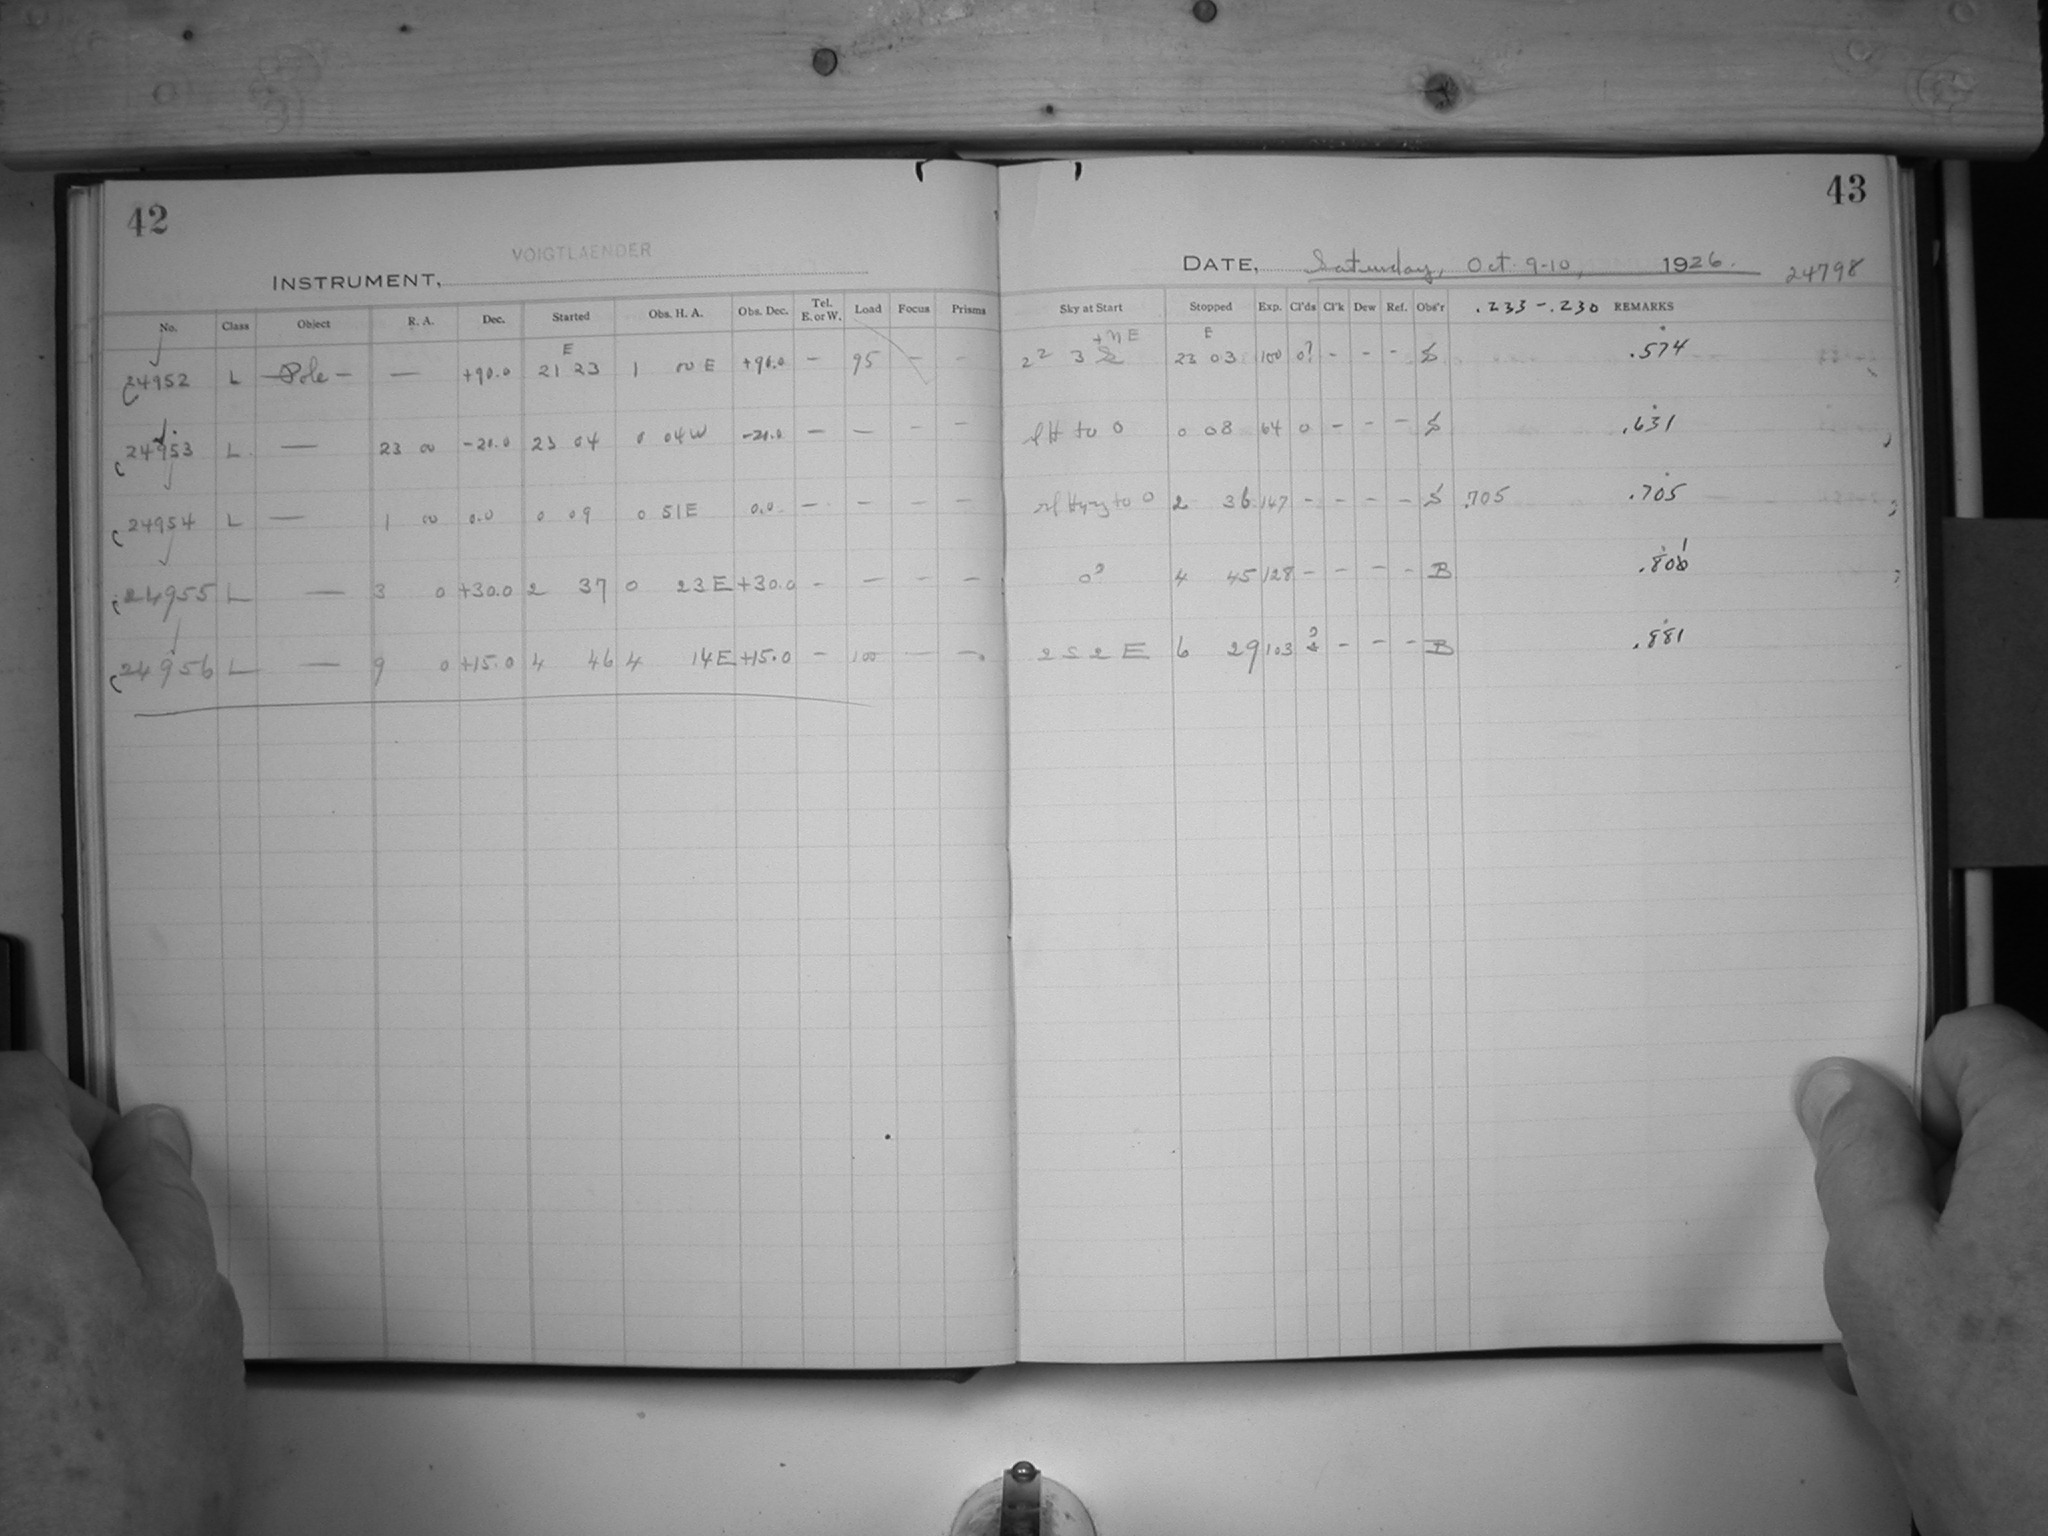 42
VOIGTLAENDER
INSTRUMENT,
No. Class Object R. A. Dec. Started Obs. H. A. Obs. Dec. Tel. E. or W. Load Focus Prisms
E
24952 L - Pole - — +90.0 21 23 1 00 E +90.0 - 95 - -
24953 L — 23 00 -20.0 23 04 0 04 W -20.0 - - - -
24954 L — 1 00 0.0 0 09 0 51 E 0.0 - - - -
24955 L — 3 0 +30.0 2 37 0 23 E +30.0 - - - -
24956 L — 9 0 +15.0 4 46 4 14 E +15.0 - 100 - -
43
DATE, Saturday, Oct. 9-10, 1926. 24798
Sky at Start Stopped Exp. Cl'ds Cl'k Dew Ref. Obs'r .233 - .230 REMARKS
+ N E E
22 3 23 03 100 0? - - - S .574
to 0 0 08 64 0 - - - S .631
to 0 2 36 147 - - - - S .705 .705
0? 4 45 128 - - - - B
2 S 2 E 6 29 103 - - - B .881